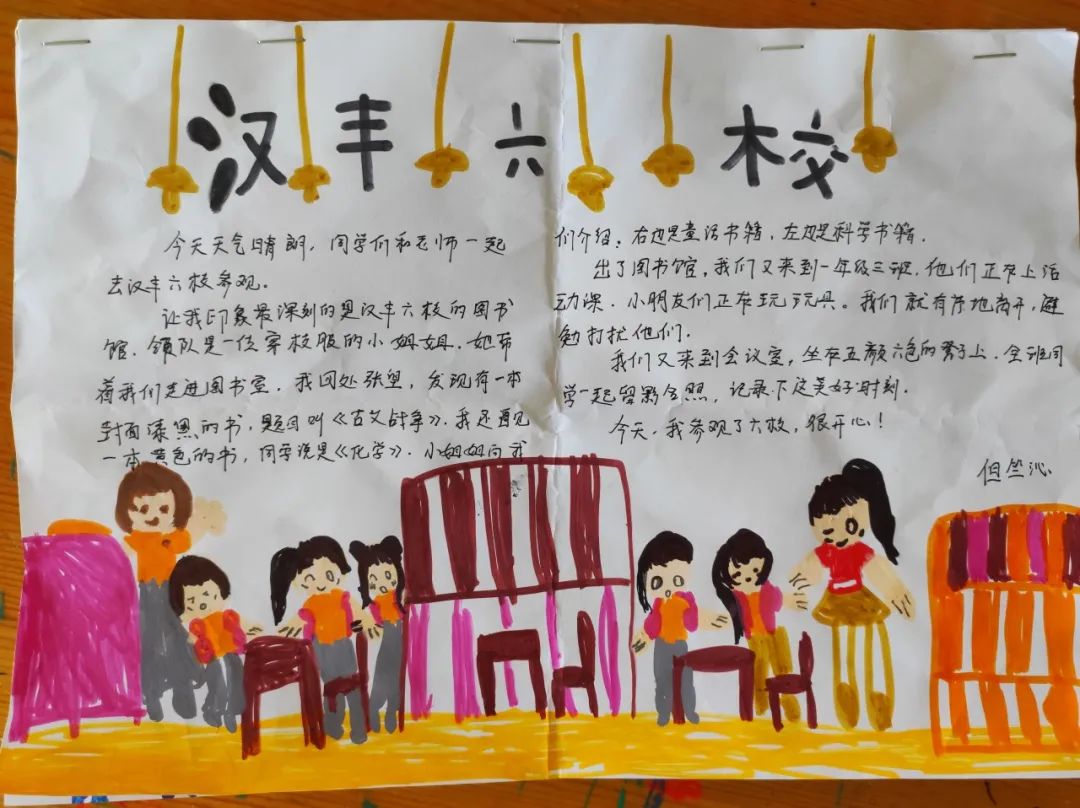 汉丰六校
今天天气晴朗，同学们和老师一起
去汉丰六校参观。
让我印象最深刻的是汉丰六校的图书
馆，领队是一位穿校服的小姐姐，她带
着我们走进图书室，我四处张望，发现有一本
封面漆黑的书，题目叫《古文战争》，我还看见
一本黄色的书，同学说是《化学》，小姐姐向我
们介绍：右边是童话书籍，左边是科学书籍。
出了图书馆，我们又来到一年级三班，他们正在上活
动课，小朋友们正在玩玩具。我们就有序地离开，避
免打扰他们。
我们又来到会议室，坐在五颜六色的凳子上，全班同
学一起留影合照，记录下这美好时刻。
今天，我参观了六校，很开心！
但竺沁